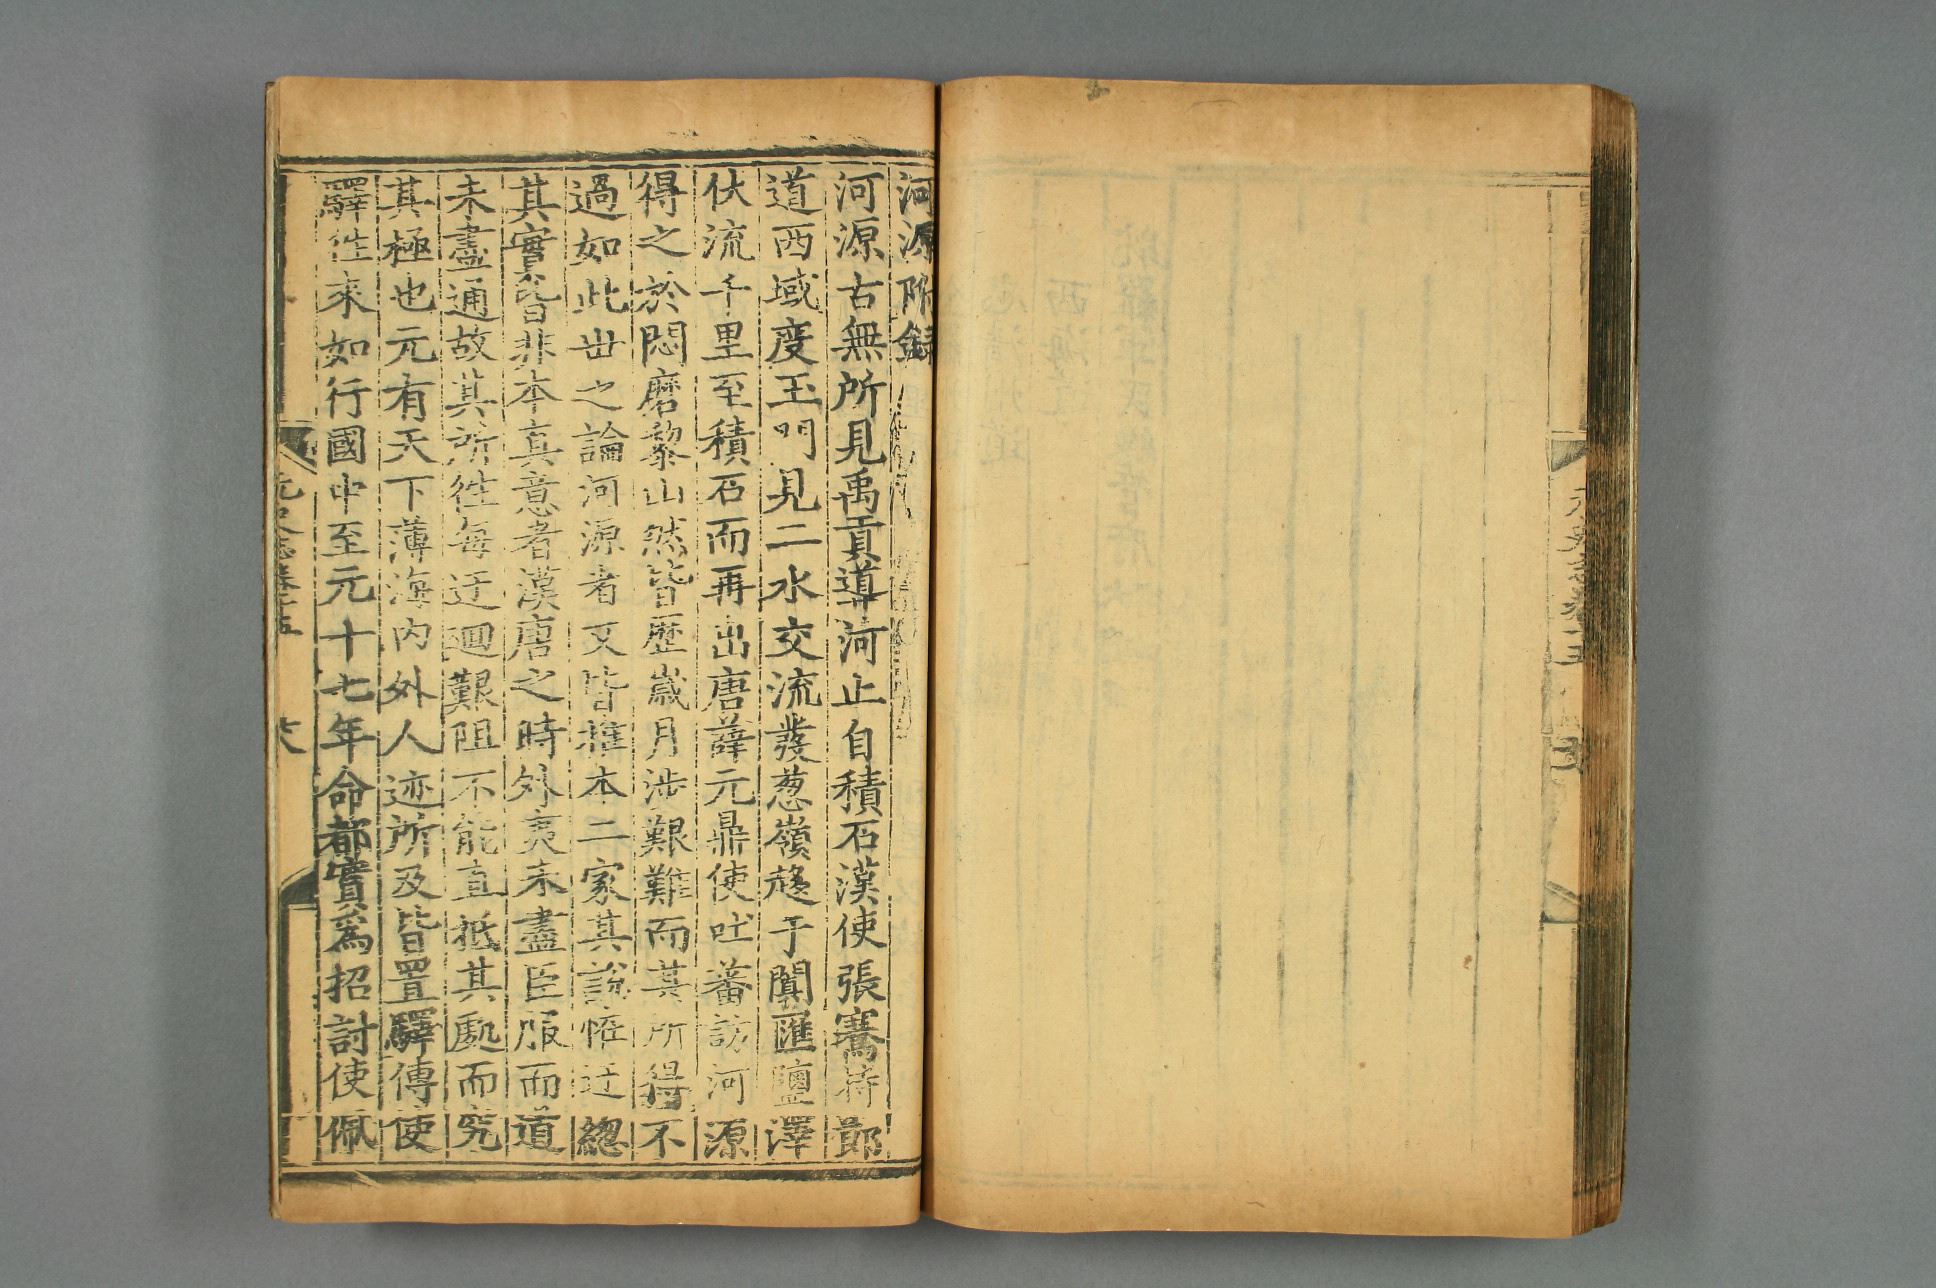 河源附録
河源古無所見禹貢導河止自積石漢使張騫持節
道西域度玉門見二水交流發葱嶺趍于闐匯鹽澤
伏流千里至積石而再出唐薛元鼎使吐蕃訪河源
得之於悶磨黎山然皆歴歲月涉艱難而其所得不
過如此世之論河源者又皆推本二家其說恠迂緫
其實皆非本真意者漢唐之時外夷未盡臣服而道
未盡通故其所徃每迂迴艱阻不能直抵其處而究
其極也元有天下薄海内外人迹所及皆置驛傳使
驛徃來如行國中至元十七年命都實爲招討使佩
元史志卷十五
十六